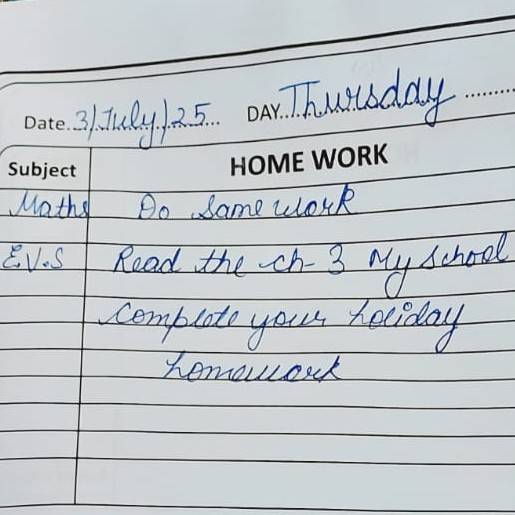 Date..3/July/25... DAY..Thursday..........
Subject HOME WORK
Maths Do Same work
E.V.S Read the ch-3 My School
Complete your holiday
homework